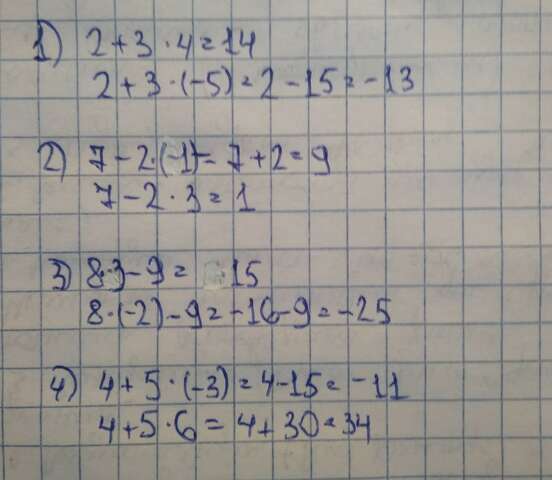 1) 2+3·4=14
2+3·(-5)=2-15=-13
2) 7-2·(-1)=7+2=9
7-2·3=1
3) 8·3-9= 15
8·(-2)-9=-16-9=-25
4) 4+5·(-3)=4-15=-11
4+5·6=4+30=34